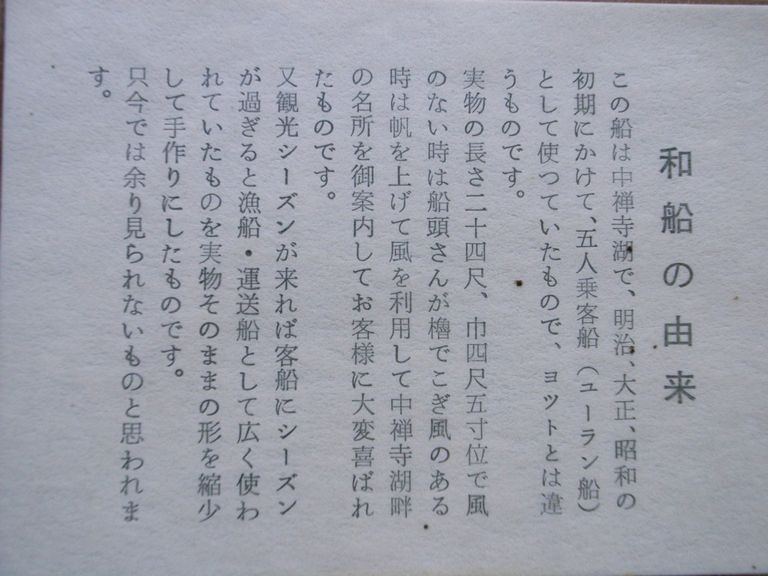 和船の由来
この船は中禅寺湖で、明治、大正、昭和の
初期にかけて、五人乗客船（ユーラン船）
として使つていたもので、ヨツトとは違
うものです。
実物の長さ二十四尺、巾四尺五寸位で風
のない時は船頭さんが櫓でこぎ風のある
時は帆を上げて風を利用して中禅寺湖畔
の名所を御案内してお客様に大変喜ばれ
たものです。
又観光シーズンが来れば客船にシーズン
が過ぎると漁船・運送船として広く使わ
れていたものを実物そのままの形を縮少
して手作りにしたものです。
只今では余り見られないものと思われま
す。